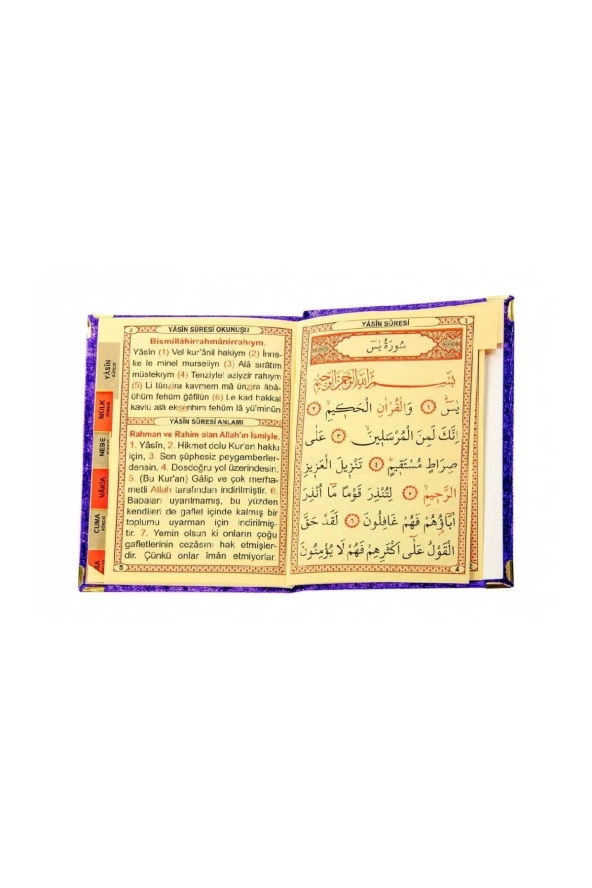 YÂSİN SÛRESİ
سُورَةُ يٰسٓ
بِسْمِ اللّٰهِ الرَّحْمٰنِ الرَّحِيمِ
يٰسٓ ﴿١﴾ وَالْقُرْاٰنِ الْحَكِيمِ ﴿٢﴾
اِنَّكَ لَمِنَ الْمُرْسَلِينَ ﴿٣﴾ عَلٰى
صِرَاطٍ مُسْتَقِيمٍ ﴿٤﴾ تَنْزِيلَ الْعَزِيزِ
الرَّحِيمِ ﴿٥﴾ لِتُنْذِرَ قَوْمًا مَٓا اُنْذِرَ
اٰبَٓاؤُ۬هُمْ فَهُمْ غَافِلُونَ ﴿٦﴾ لَقَدْ حَقَّ
الْقَوْلُ عَلٰٓى اَكْثَرِهِمْ فَهُمْ لَا يُؤْمِنُونَ
4
YÂSİN SÛRESİ OKUNUŞU
Bismillâhirrahmânirrahıym.
Yâsîn (1) Vel kur'ânil hakiym (2) İnne-
ke le minel murseliyn (3) Alâ sırâtım
müstekıym (4) Tenziylel aziyzir rahıym
(5) Li tünzira kavmem mâ ünzira âbâ-
ühüm fehüm ğâfilûn (6) Le kad hakkal
kavlü alâ eksenhim fehüm lâ yü'minûn
YÂSİN SÛRESİ ANLAMI
Rahman ve Rahim olan Allah'ın İsmiyle.
1. Yâsîn, 2. Hikmet dolu Kur'an hakkı
için, 3. Sen şüphesiz peygamberler-
densin. 4. Dosdoğru yol üzerindesin.
5. (Bu Kur'an) Gâlip ve çok merha-
metli Allah tarafından indirilmiştir. 6.
Babaları uyarılmamış, bu yüzden
kendileri de gaflet içinde kalmış bir
toplumu uyarman için indirilmiş-
tir. 7. Yemin olsun ki onların çoğu
gafletlerinin cezâsını hak etmişler-
dir. Çünkü onlar îman etmiyorlar.
5
YÂSİN
MÜLK
NEBE
VAKIA
CUMA